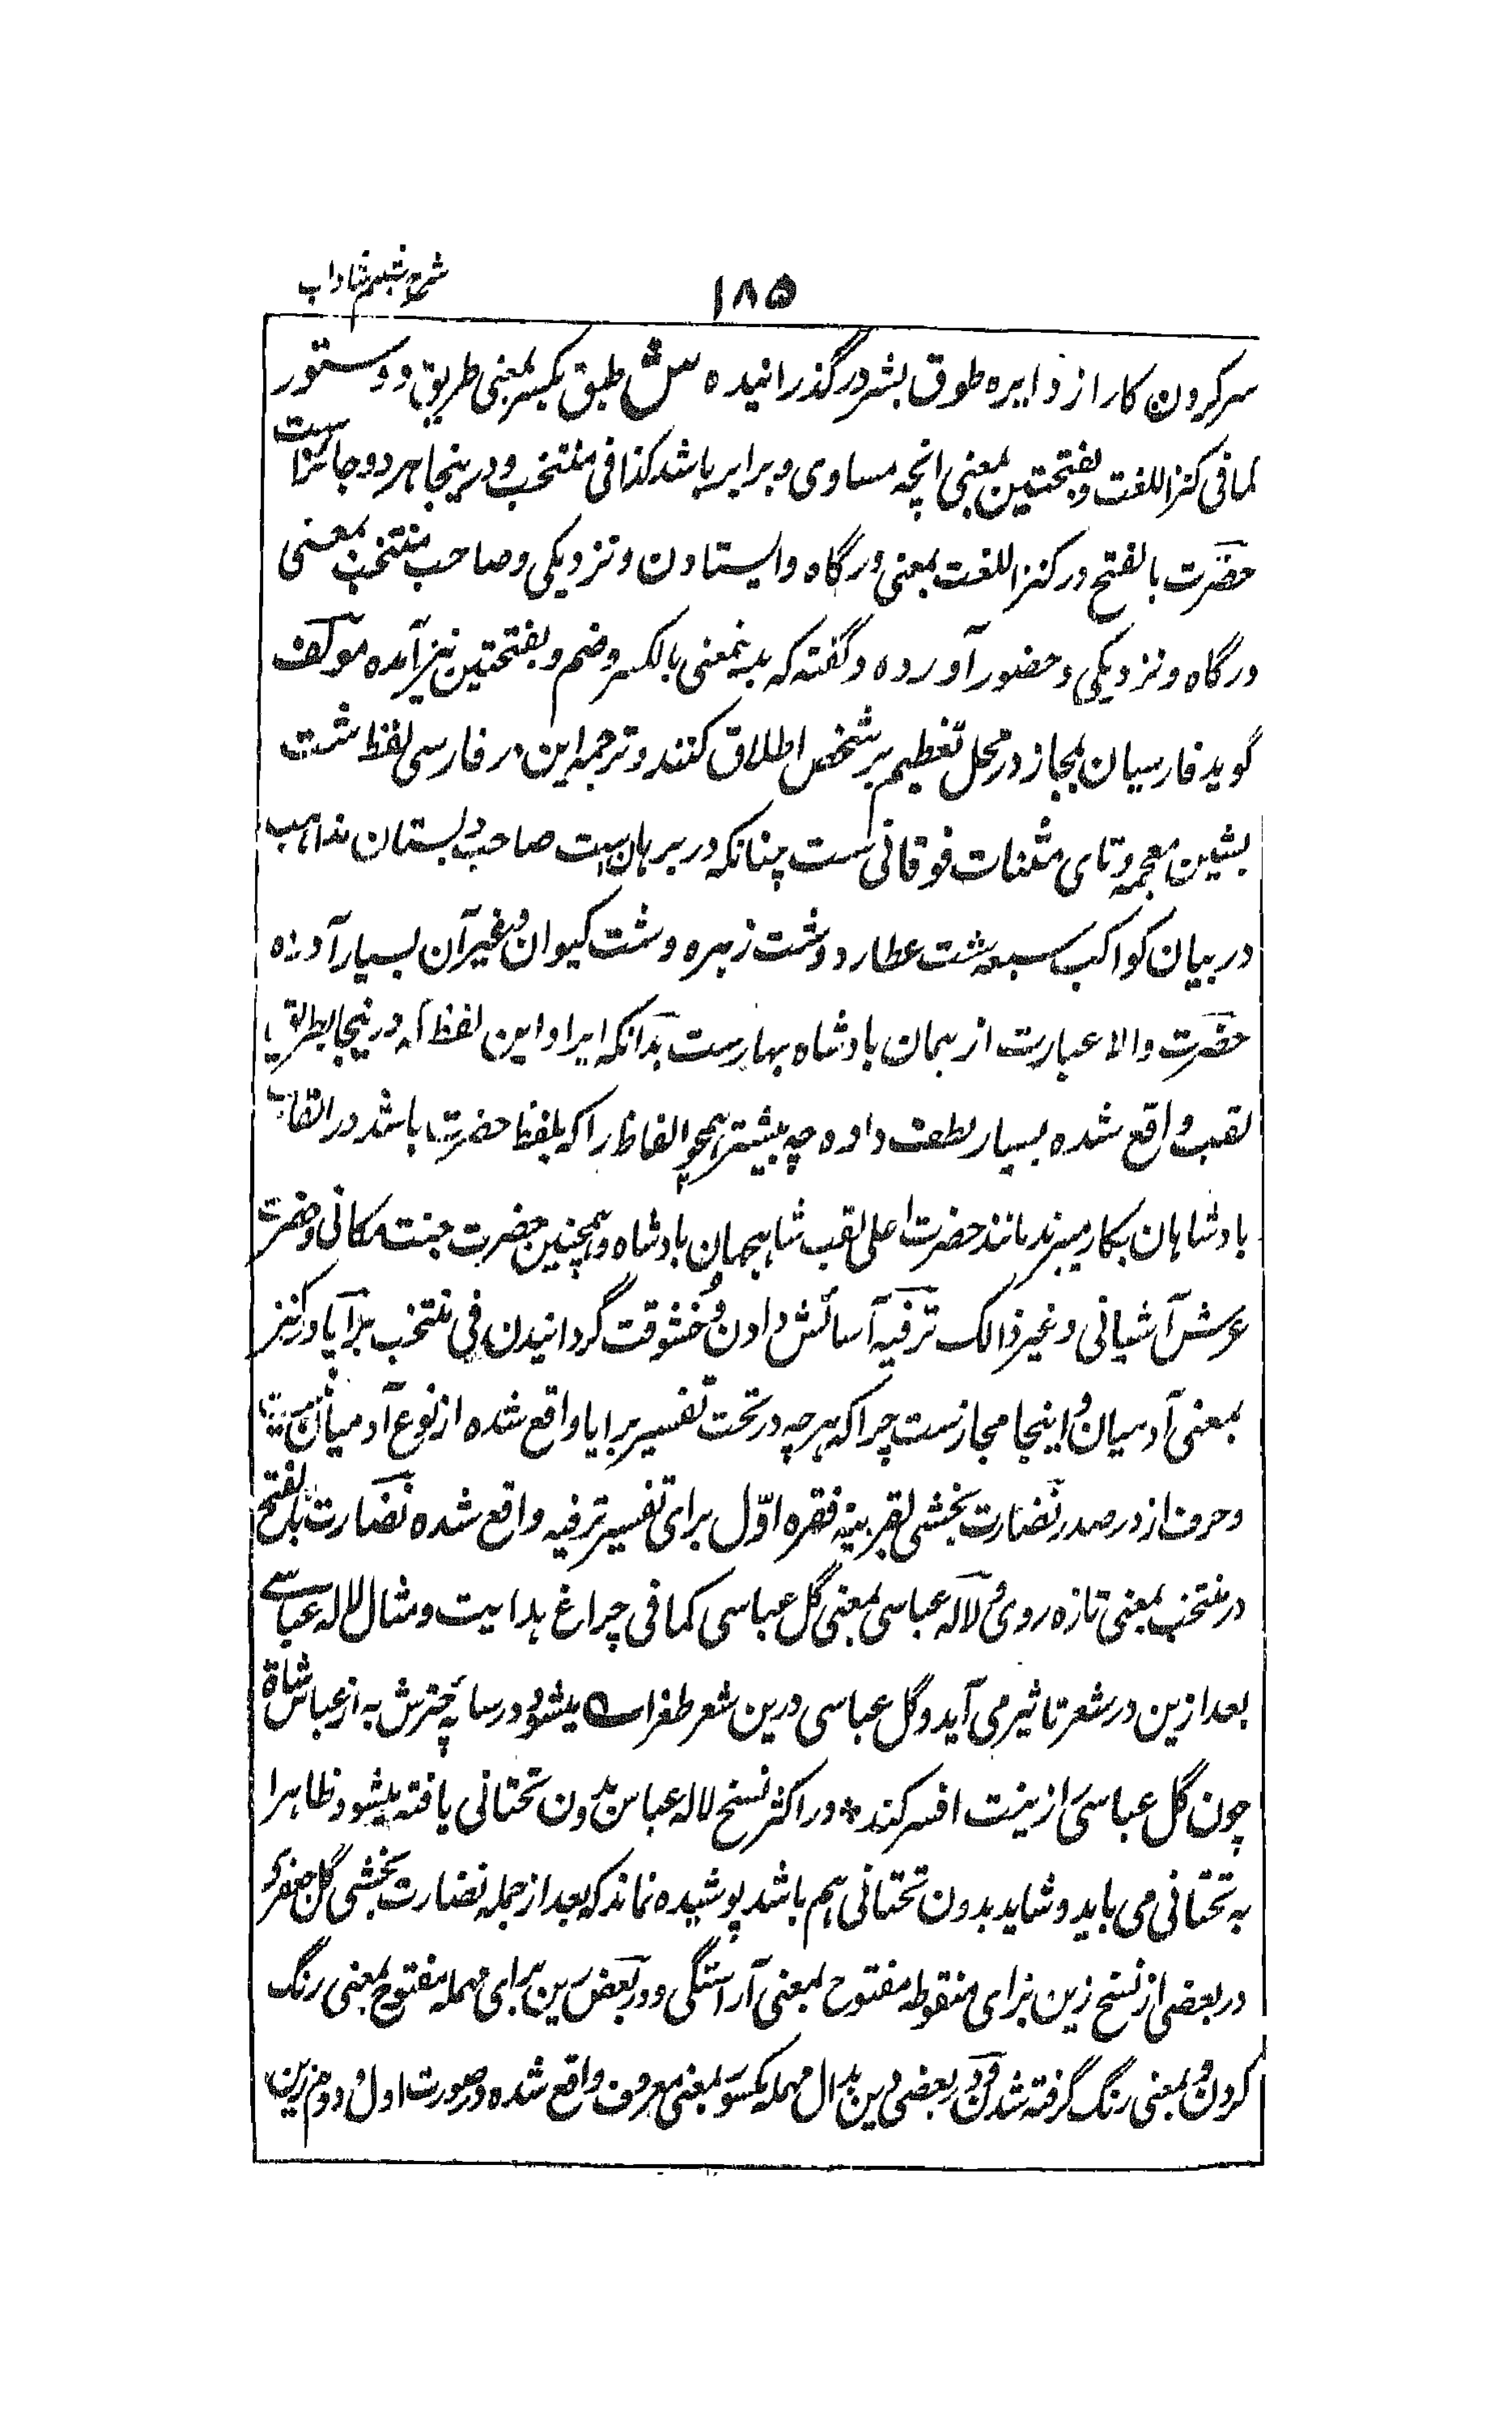 ۱۸۵
شرح شبنم شاداب
سر کردن کار از دایره طوق بشر در گذرانیده ش طبق بکسر بمعنی طریق و دستور
کما فی کنز اللغت و بفتحتین بمعنی انچه مساوی و برابر باشد کذا فی منتخب و درینجا هر دو جائز است
حضرت بالفتح در کنز اللغت بمعنی درگاه و ایستادن و نزدیکی و صاحب منتخب بمعنی
درگاه و نزدیکی و حضور آورده و گفته که بدینمعنی بالکسر و ضم و بفتحتین نیز آمده مولف
گوید فارسیان بمجاز در محل تعظیم بر شخص اطلاق کنند و ترجمه این در فارسی لفظ شت
بشین معجمه و تای مثنات فوقانی ست چنانکه در برهان ست صاحب دبستان مذاهب
در بیان کواکب سبعه شت عطارد و شت زهره و شت کیوان و غیر آن بسیار آورده
حضرت والا عبارت از همان بادشاه بهارست بدانکه ایراد این لفظ که درینجا بطریق
لقب واقع شده بسیار لطف داده چه بیشتر همچو الفاظ را که بلفظ حضرت باشد در القاب
بادشاهان بکار میبرند مانند حضرت اعلی لقب شاهجهان بادشاه و همچنین حضرت جنت مکانی و حضرت
عرش آشیانی و غیر ذالک ترفیه آسائش دادن و خشوقت گردانیدن فی منتخب برایا در کنز
بمعنی آدمیان و اینجا مجازست چرا که هر چه در تحت تفسیر برایا واقع شده از نوع آدمیان نیست
و حرف از در صدر نضارت بخشی بقرینه فقره اوّل برای تفسیر ترفیه واقع شده نضارت بالفتح
در منتخب بمعنی تازه روی و لاله عباسی بمعنی گل عباسی کما فی چراغ هدایت و مثال لاله عباسے
بعد ازین در شعر تاثیر می آید و گل عباسی درین شعر طغراست میشود در سایه چترش به از عباس شاه
چون گل عباسی از زینت افسر کند * در اکثر نسخ لاله عباس بدون تحتانی یافته میشود ظاهرا
به تحتانی می باید و شاید بدون تحتانی هم باشد پوشیده نماند که بعد از جمله نضارت بخشی گل جعفری
در بعضی از نسخ زین بزای منقوطه مفتوح بمعنی آراستگی و در بعض رین برای مهمله مفتوح بمعنی رنگ
کردن و بمعنی رنگ گرفته شدن و در بعضی دین بدال مهمله مکسور بمعنی معروف واقع شده در صورت اول و دوم زین